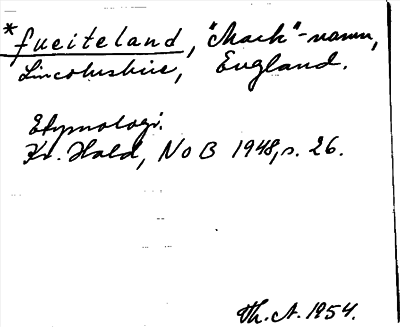 *fueiteland, "Mark"-namn,
Lincolnshire, England.
Etymologi.
Kr. Hald, NoB 1948, s. 26.
Th. A. 1954.